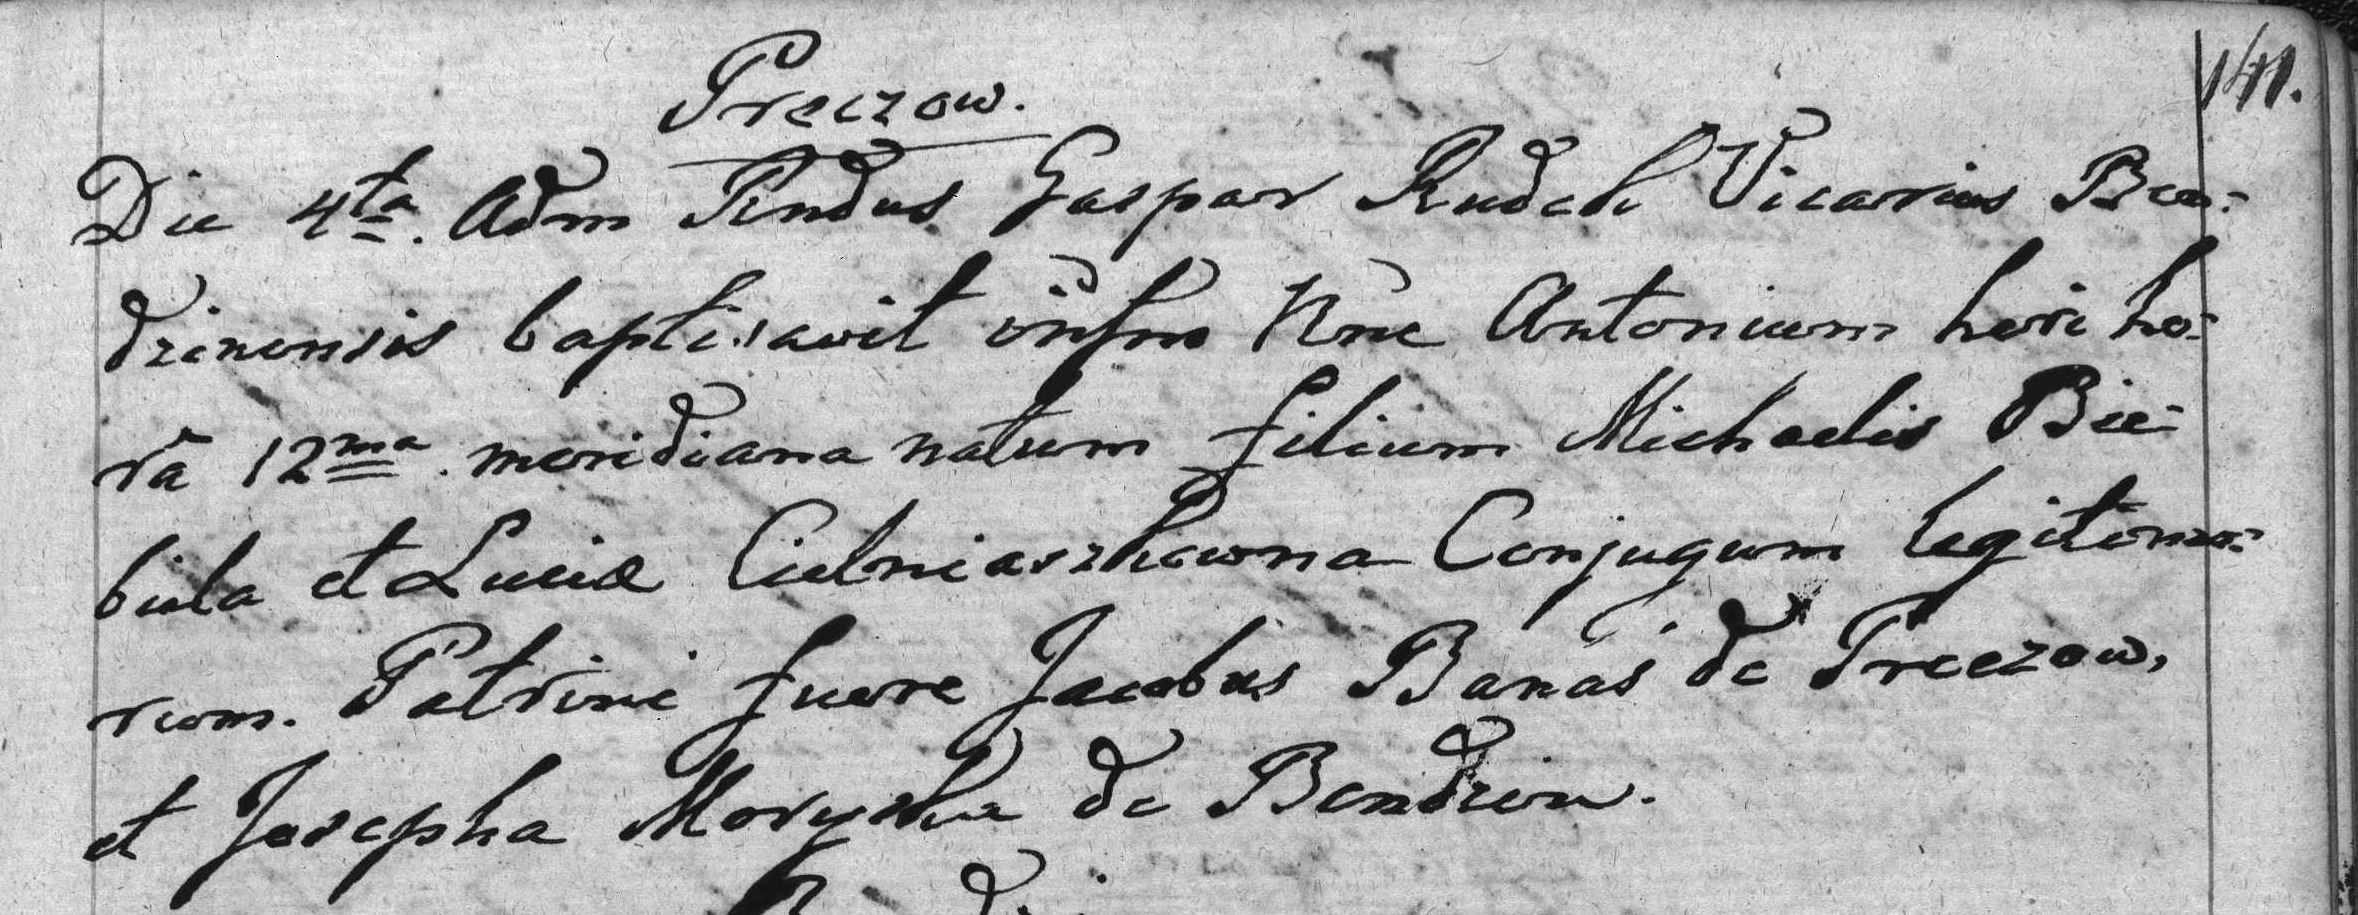 141.
Preczow.
Die 4ta. Adm Rndus Gaspar Rudek Vicarius Ben:
dzinensis baptisavit infra Nne Antonium heri ho:
râ 12ma. meridiana natum filium Michaelis Bie:
bula et Luciæ Cielniaszkowna Conjugum legitimo:
rum. Patrini fuere Jacobus Banaś de Preczow,
et Josepha Moryska de Bendzin.